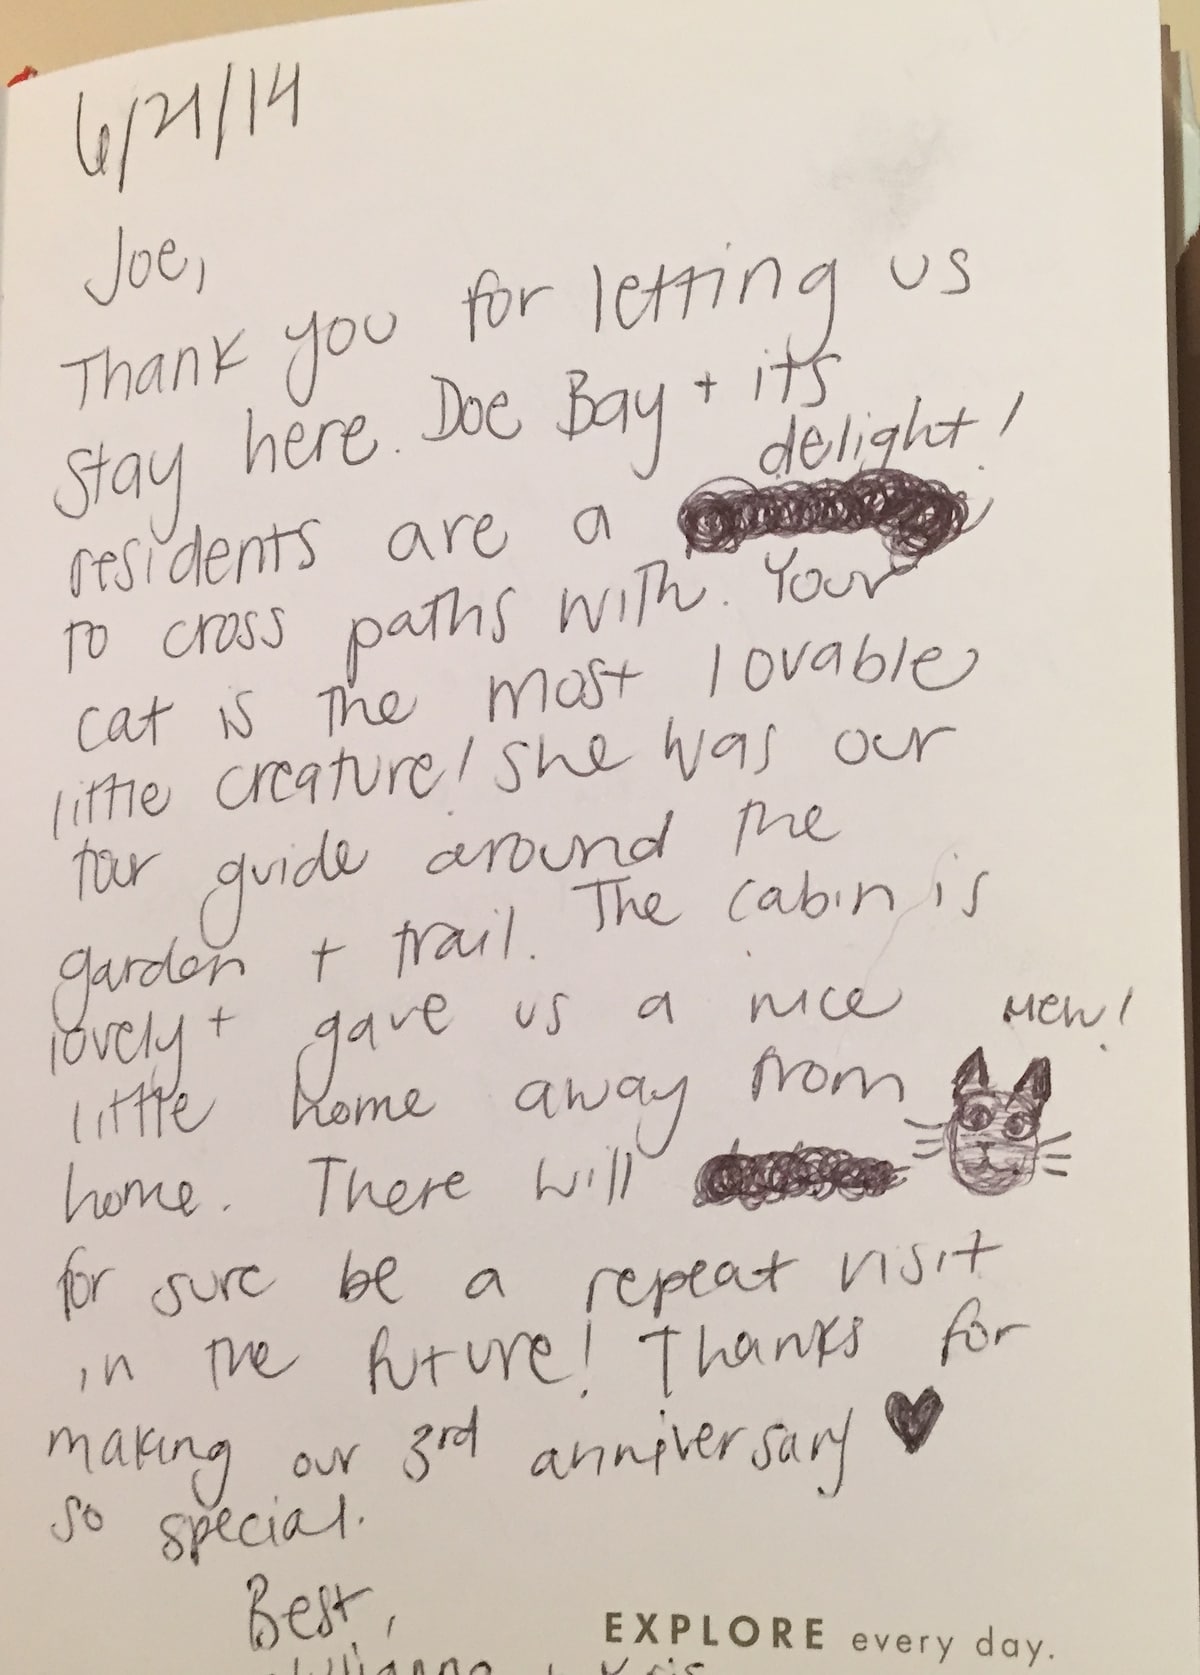 6/21/14
Joe,
Thank you for letting us
stay here. Doe Bay + its
delight!
residents are a
to cross paths with. Your
cat is the most lovable
little creature! She was our
tour guide around the
garden + trail. The cabin is
lovely + gave us a nice
mew!
little home away from
home. There will
for sure be a repeat visit
in the future! Thanks for
making our 3rd anniversary ♥
so special.
Best,
EXPLORE every day.
+ Kris